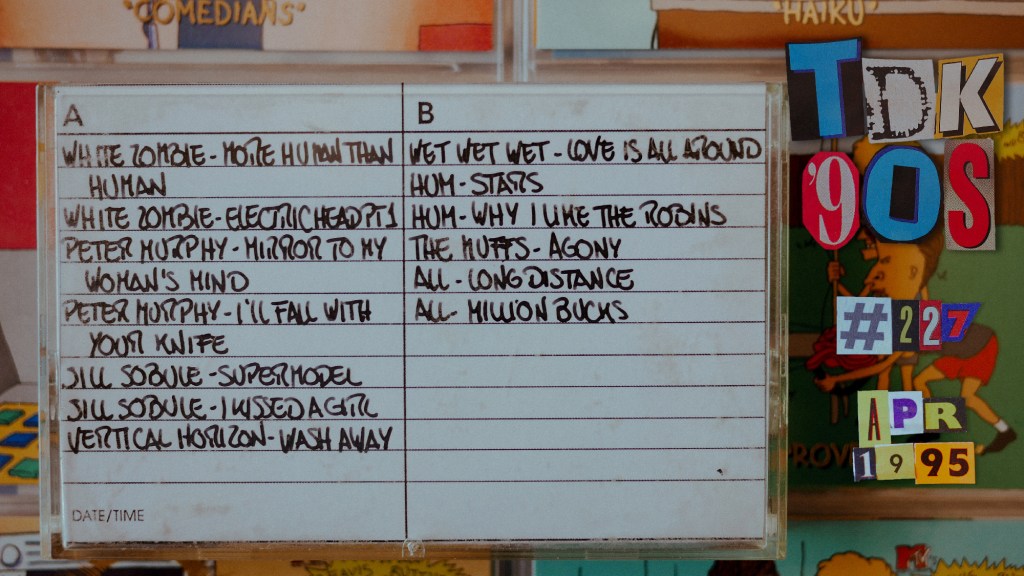 "COMEDIANS"
"HAIKU"
A
WHITE ZOMBIE - MORE HUMAN THAN
HUMAN
WHITE ZOMBIE - ELECTRIC HEAD PT 1
PETER MURPHY - MIRROR TO MY
WOMAN'S MIND
PETER MURPHY - I'LL FALL WITH
YOUR KNIFE
JILL SOBULE - SUPERMODEL
JILL SOBULE - I KISSED A GIRL
VERTICAL HORIZON - WASH AWAY
DATE/TIME
B
WET WET WET - LOVE IS ALL AROUND
HUM - STARS
HUM - WHY I LIKE THE ROBINS
THE MUFFS - AGONY
ALL - LONG DISTANCE
ALL - MILLION BUCKS
TDK
'90S
#227
APR
1995
MTV